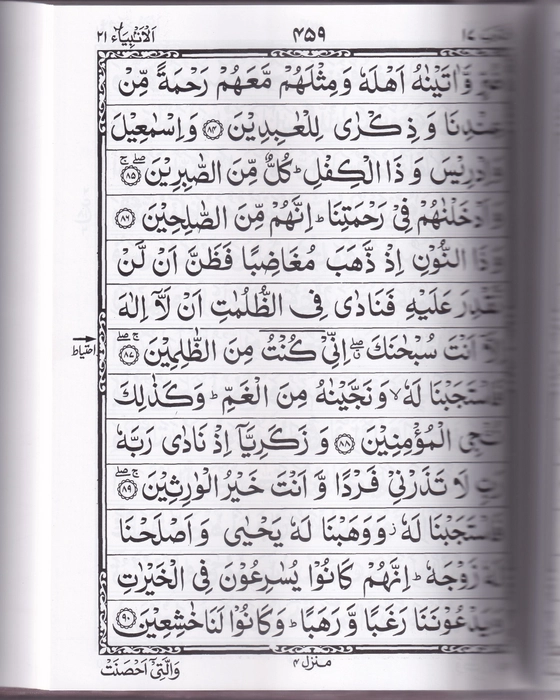 الانبیاء ٢١
٤٥٩
١٧
وَّاٰتَيْنٰهُ اَهْلَهٗ وَمِثْلَهُمْ مَّعَهُمْ رَحْمَةً مِّنْ
عِنْدِنَا وَ ذِكْرٰى لِلْعٰبِدِيْنَ ﴿٨٤﴾ وَاِسْمٰعِيْلَ
وَاِدْرِيْسَ وَ ذَا الْكِفْلِ ؕ كُلٌّ مِّنَ الصّٰبِرِيْنَ ﴿٨٥﴾
وَاَدْخَلْنٰهُمْ فِىْ رَحْمَتِنَا ؕ اِنَّهُمْ مِّنَ الصّٰلِحِيْنَ ﴿٨٦﴾
وَذَا النُّوْنِ اِذْ ذَّهَبَ مُغَاضِبًا فَظَنَّ اَنْ لَّنْ
نَّقْدِرَ عَلَيْهِ فَنَادٰى فِى الظُّلُمٰتِ اَنْ لَّاۤ اِلٰهَ
اِلَّاۤ اَنْتَ سُبْحٰنَكَ ۖ اِنِّىْ كُنْتُ مِنَ الظّٰلِمِيْنَ ﴿٨٧﴾
احتیاط
فَاسْتَجَبْنَا لَهٗ ۙ وَ نَجَّيْنٰهُ مِنَ الْغَمِّ ؕ وَكَذٰلِكَ
نُنْجِى الْمُؤْمِنِيْنَ ﴿٨٨﴾ وَ زَكَرِيَّاۤ اِذْ نَادٰى رَبَّهٗ
رَبِّ لَا تَذَرْنِىْ فَرْدًا وَّ اَنْتَ خَيْرُ الْوٰرِثِيْنَ ﴿٨٩﴾
فَاسْتَجَبْنَا لَهٗ ز وَوَهَبْنَا لَهٗ يَحْيٰى وَ اَصْلَحْنَا
لَهٗ زَوْجَهٗ ؕ اِنَّهُمْ كَانُوْا يُسٰرِعُوْنَ فِى الْخَيْرٰتِ
وَيَدْعُوْنَنَا رَغَبًا وَّ رَهَبًا ؕ وَكَانُوْا لَنَا خٰشِعِيْنَ ﴿٩٠﴾
منزل ٤
وَالَّتِىْۤ اَحْصَنَتْ